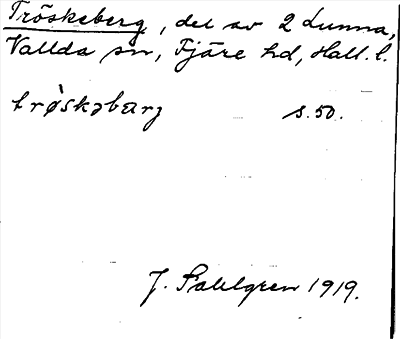 Tröskeberg, del av 2 Lunna,
Vallda sn, Fjäre hd, Hall. l.
trø̀skəbærj s. 50.
J. Sahlgren 1919.